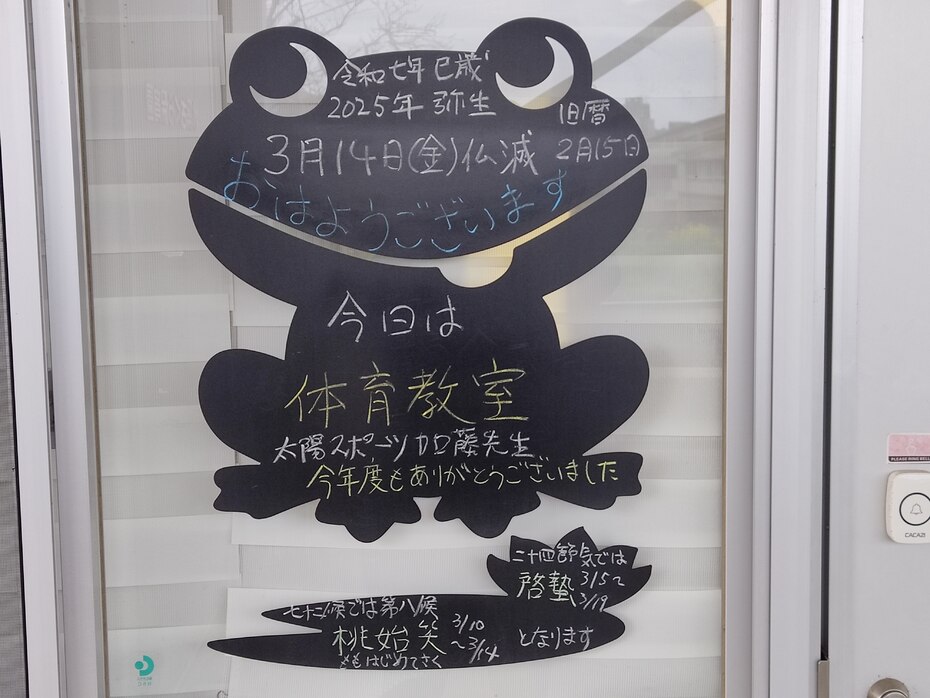 令和七年 巳歳
2025年 弥生
旧暦
3月14日(金)仏滅 2月15日
おはようございます
今日は
体育教室
太陽スポーツ加藤先生
今年度もありがとうございました
二十四節気では
啓蟄 3/5~
3/19
七十二候では第八候
桃始笑 3/10
~3/14
ももはじめてさく
となります
PLEASE RING BELL
CACAZI